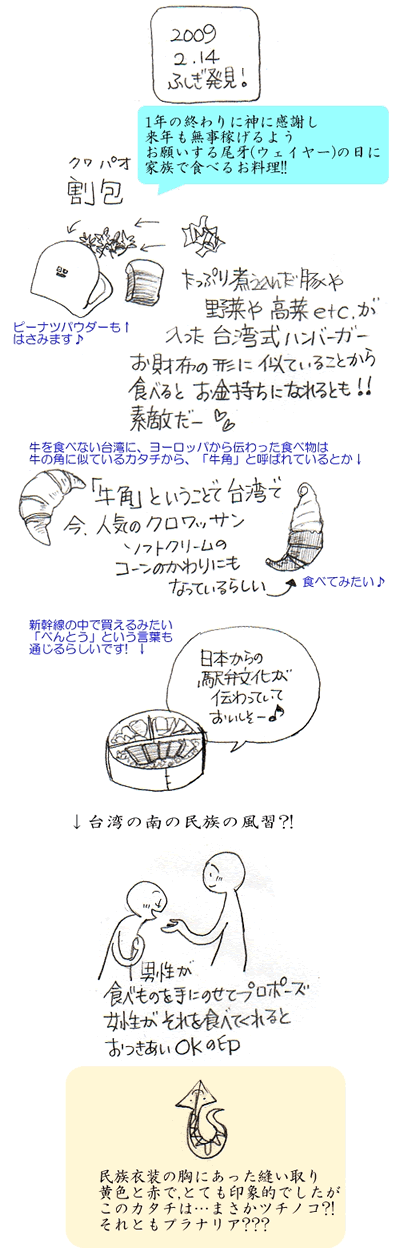 2009
2.14
ふしぎ発見!
1年の終わりに神に感謝し
来年も無事稼げるよう
お願いする尾牙(ウェイヤー)の日に
家族で食べるお料理!!
クワパオ
割包
ピーナツパウダーも↑
はさみます♪
たっぷり煮込んだ豚や
野菜や高菜etc.が
入った台湾式ハンバーガー
お財布の形に似ていることから
食べるとお金持ちになれるとも!!
素敵だー♡♡
牛を食べない台湾に、ヨーロッパから伝わった食べ物は
牛の角に似ているカタチから、「牛角」と呼ばれているとか↓
「牛角」ということで台湾で
今、人気のクロワッサン
ソフトクリームの
コーンのかわりにも
なっているらしい
食べてみたい♪
新幹線の中で買えるみたい
「べんとう」という言葉も
通じるらしいです! ↓
日本からの
駅弁文化が
伝わっていて
おいしそー♪
↓台湾の南の民族の風習?!
男性が
食べものを手にのせてプロポーズ
女性がそれを食べてくれると
おつきあいOKの印
民族衣装の胸にあった縫い取り
黄色と赤で,とても印象的でしたが
このカタチは…まさかツチノコ?!
それともプラナリア???